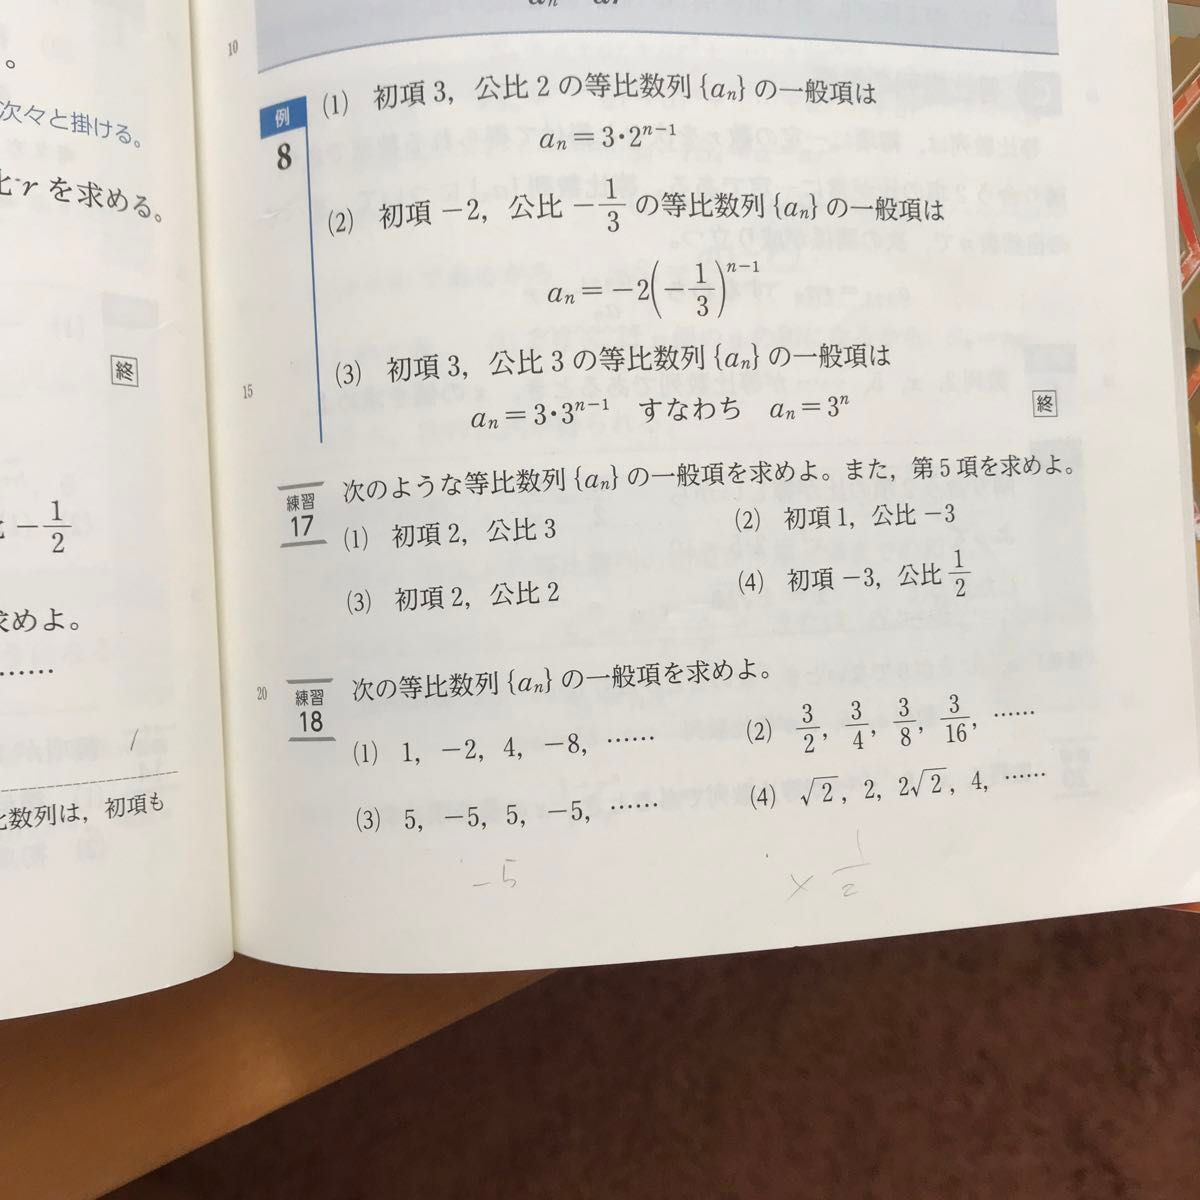 。
次々と掛ける。
比 r を求める。
終
−1/2
求めよ。
……
比数列は，初項も
10
例 8
(1) 初項 3，公比 2 の等比数列 {aₙ} の一般項は
aₙ＝3・2ⁿ⁻¹
(2) 初項 −2，公比 −1/3 の等比数列 {aₙ} の一般項は
aₙ＝−2(−1/3)ⁿ⁻¹
(3) 初項 3，公比 3 の等比数列 {aₙ} の一般項は
15
aₙ＝3・3ⁿ⁻¹ すなわち aₙ＝3ⁿ
終
練習 17
次のような等比数列 {aₙ} の一般項を求めよ。また，第 5 項を求めよ。
(1) 初項 2，公比 3 (2) 初項 1，公比 −3
(3) 初項 2，公比 2 (4) 初項 −3，公比 1/2
20
練習 18
次の等比数列 {aₙ} の一般項を求めよ。
(1) 1，−2，4，−8，…… (2) 3/2，3/4，3/8，3/16，……
(3) 5，−5，5，−5，…… (4) √2，2，2√2，4，……
−5 × 1/2